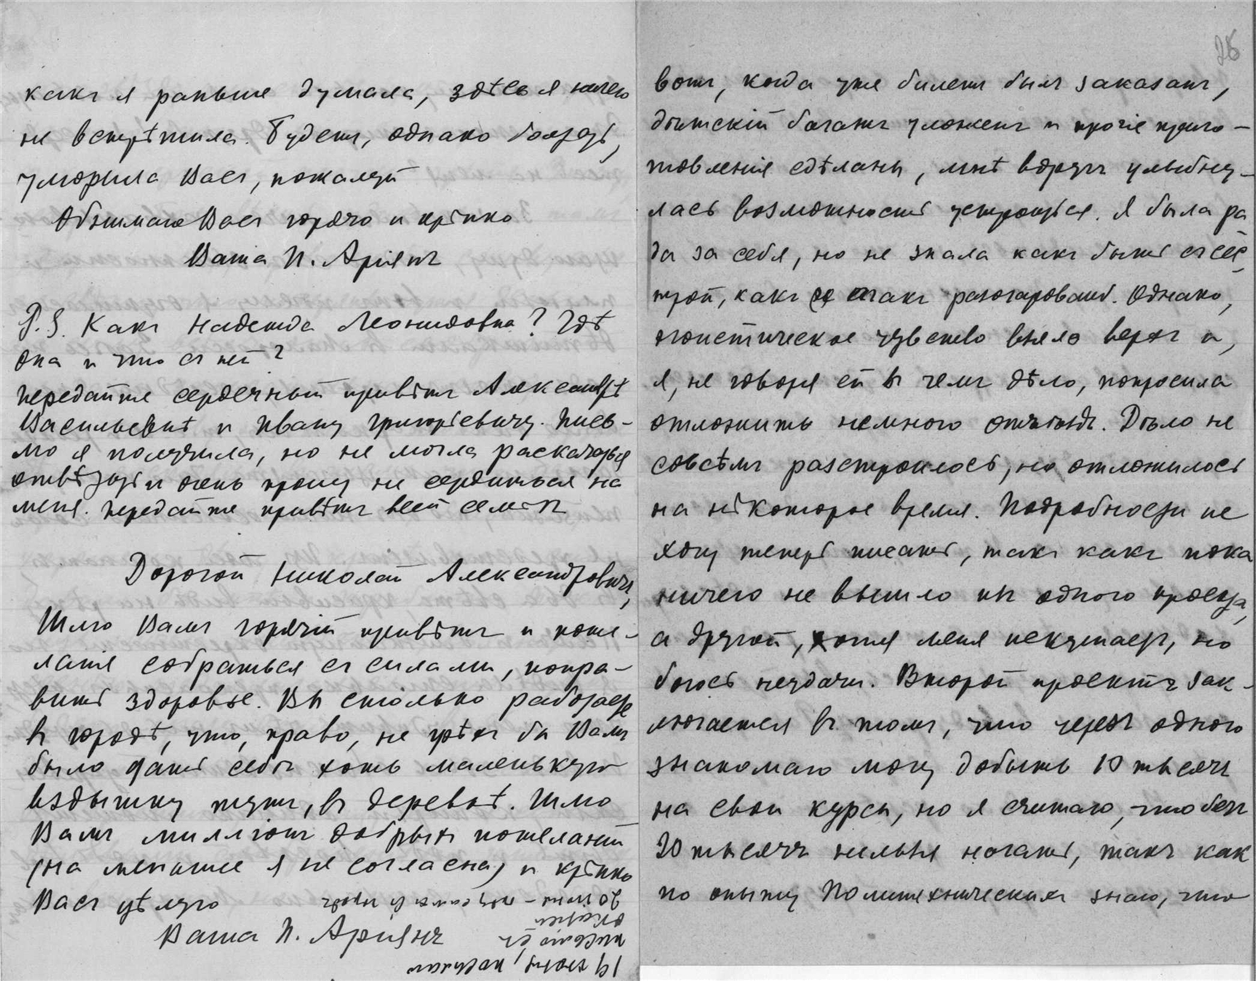 какъ я раньше думала, здѣсь я ничего
не встрѣтила. Будетъ, однако болтать,
уморила Васъ, пожалуй
Обнимаю Васъ горячо и крѣпко
Ваша П. Аріянъ
P.S. Какъ Надежда Леонидовна? Гдѣ
она и что съ ней?
Передайте сердечный привѣтъ Александрѣ
Васильевнѣ и Ивану Григорьевичу. Пись-
мо я получила, но не могла раскачаться
отвѣтить и очень прошу не сердиться на
меня. Передайте привѣтъ всей семьѣ
Дорогой Николай Александровичъ,
Шлю Вамъ горячій привѣтъ и поже-
ланія собраться съ силами, попра-
вить здоровье. Вы столько работаете
въ городѣ, что, право, не грѣхъ бы Вамъ
было дать себѣ хоть маленькую
вздышку тутъ, въ деревнѣ. Шлю
Вамъ миллiонъ добрыхъ пожеланій
(на меньше я не согласна) и крѣпко
Васъ цѣлую
Ваша П. Аріянъ
19
письмо
26
вотъ, когда уже билетъ былъ заказанъ,
дѣтскій багажъ уложенъ и прочіе приго-
товленія сдѣланы, мнѣ вдругъ улыбну-
лась возможность устроиться. Я была ра
да за себя, но не знала какъ быть съ сес
трой, какъ ее такъ разочаровать. Однако,
эгоистическое чувство взяло верхъ и,
я, не говоря ей въ чемъ дѣло, попросила
отложить немного отъѣздъ. Дѣло не
совсѣмъ разстроилось, но отложилось
на нѣкоторое время. Подробности не
хочу теперь писать, такъ какъ пока
ничего не вышло изъ одного проекта,
а другой, хотя меня искушаетъ, но
боюсь неудачи. Второй проектъ зак-
лючается въ томъ, что черезъ одного
знакомаго могу добыть 10 тысячъ
на свои курсы, но я считаю, что безъ
20 тысячъ нельзя начать, такъ какъ
по опыту Политехническихъ знаю, что